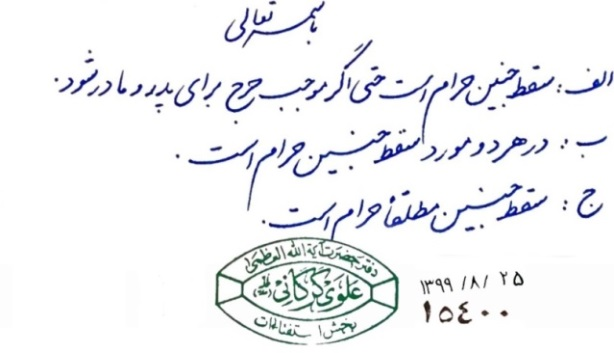 باسمه تعالی
الف: سقط جنین حرام است حتی اگر موجب حرج برای پدر و مادر شود.
ب: در هر دو مورد سقط جنین حرام است.
ج: سقط جنین مطلقاً حرام است.
دفتر حضرت آیة الله العظمی
علوی گرگانی
بخش استفتائات
۱۳۹۹/۸/۲۵
۱۵٤۰۰